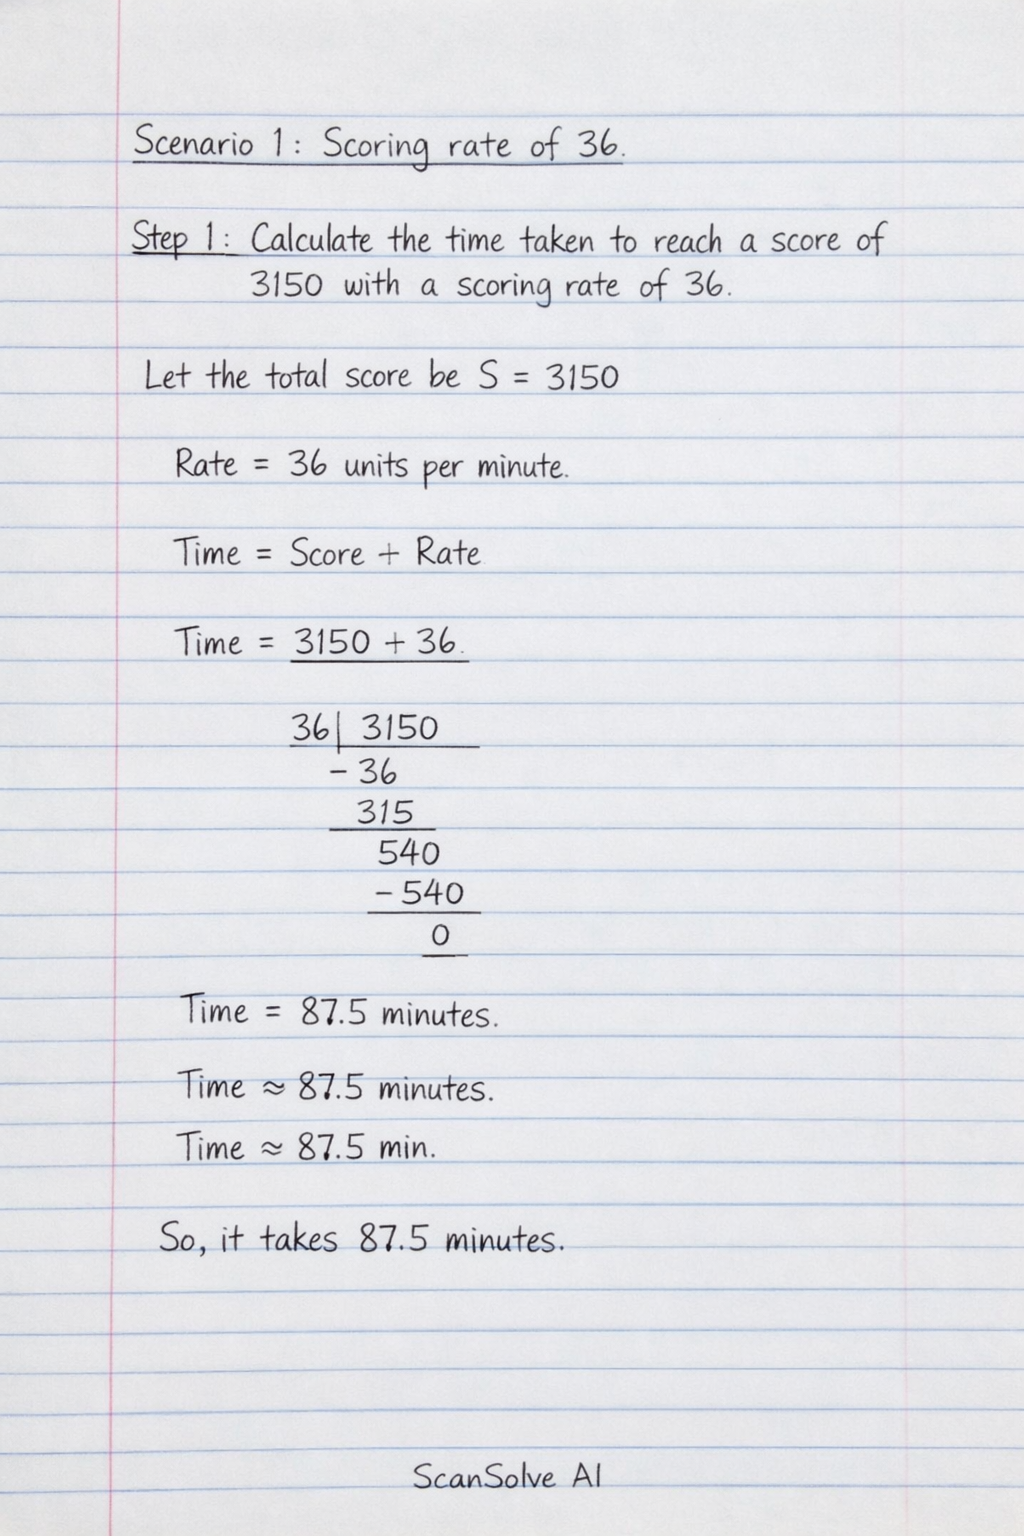 Scenario 1: Scoring rate of 36.
Step 1: Calculate the time taken to reach a score of
3150 with a scoring rate of 36.
Let the total score be S = 3150
Rate = 36 units per minute.
Time = Score + Rate
Time = 3150 + 36.
36| 3150
- 36
315
540
- 540
0
Time = 87.5 minutes.
Time ≈ 87.5 minutes.
Time ≈ 87.5 min.
So, it takes 87.5 minutes.
ScanSolve AI